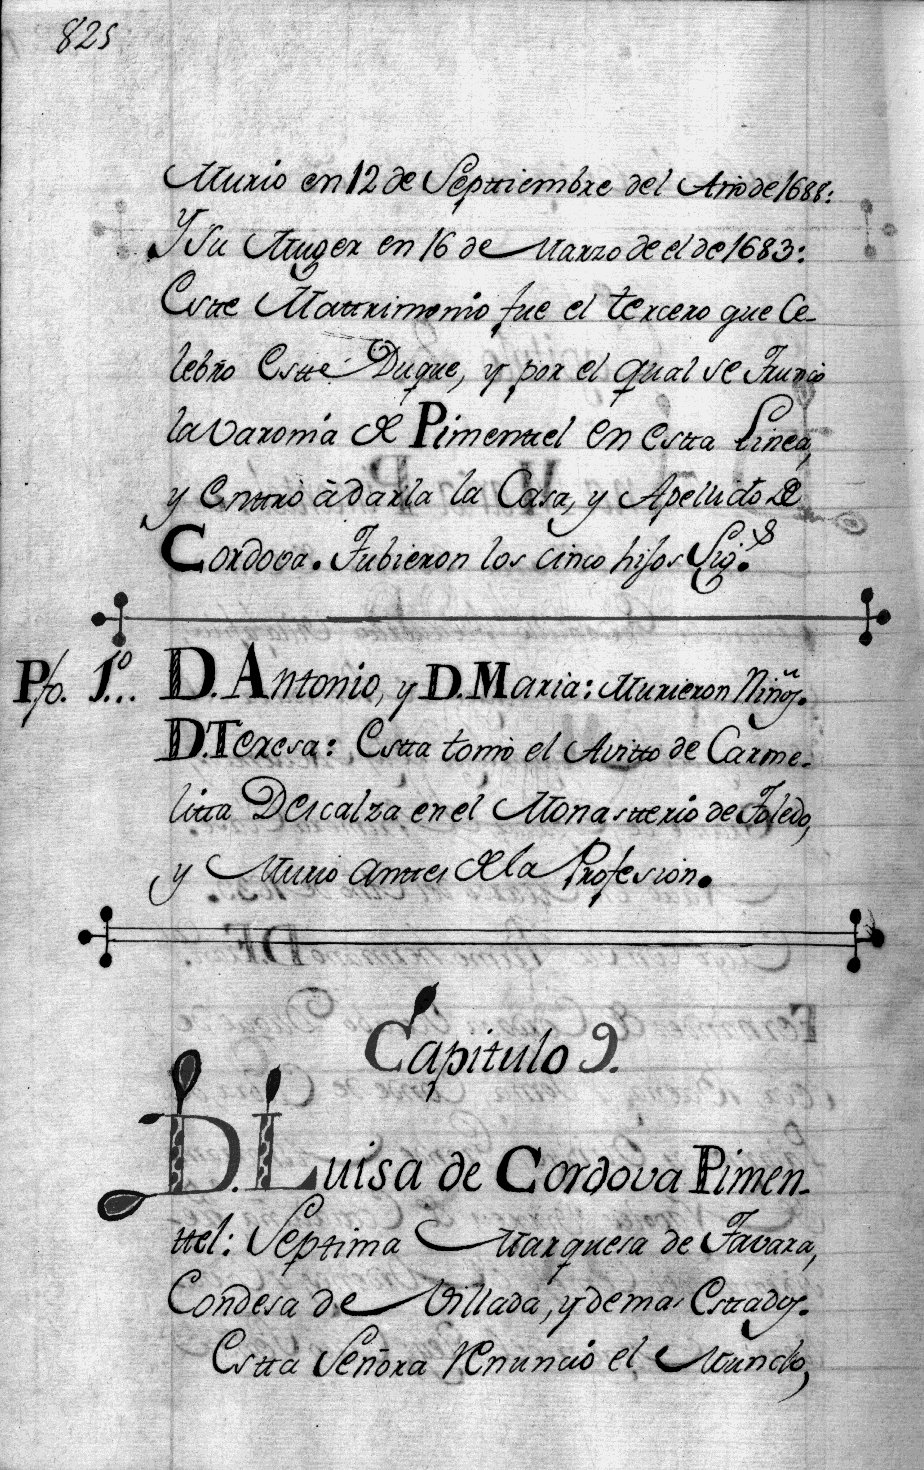 825
Murio en 12 de Septtiembre del Año de 1688:
Y su Muger en 16 de Marzo de el de 1683:
Estte Mattrimonio fue el tercero que Ce-
lebro Estte Duque, y por el qual se Frunció
la varonia de Pimenttel en estta Linea,
y enttró à darla la Casa, y Apellido de
Cordova. Tubieron los cinco hijos Sig.s
Pfo. 1.º... D. Antonio, y D. Maria: Murieron Niños.
D. Teresa: Estta tomó el Avitto de Carme-
litta Descalza en el Monastterio de Toledo,
y Murio anttes de la Profesion.
Capitulo 9.
D. Luisa de Cordova Pimen-
ttel: Septima Marquesa de Tavara,
Condesa de Villada, y demas Esttados.
Estta Señora renunció el Mundo,